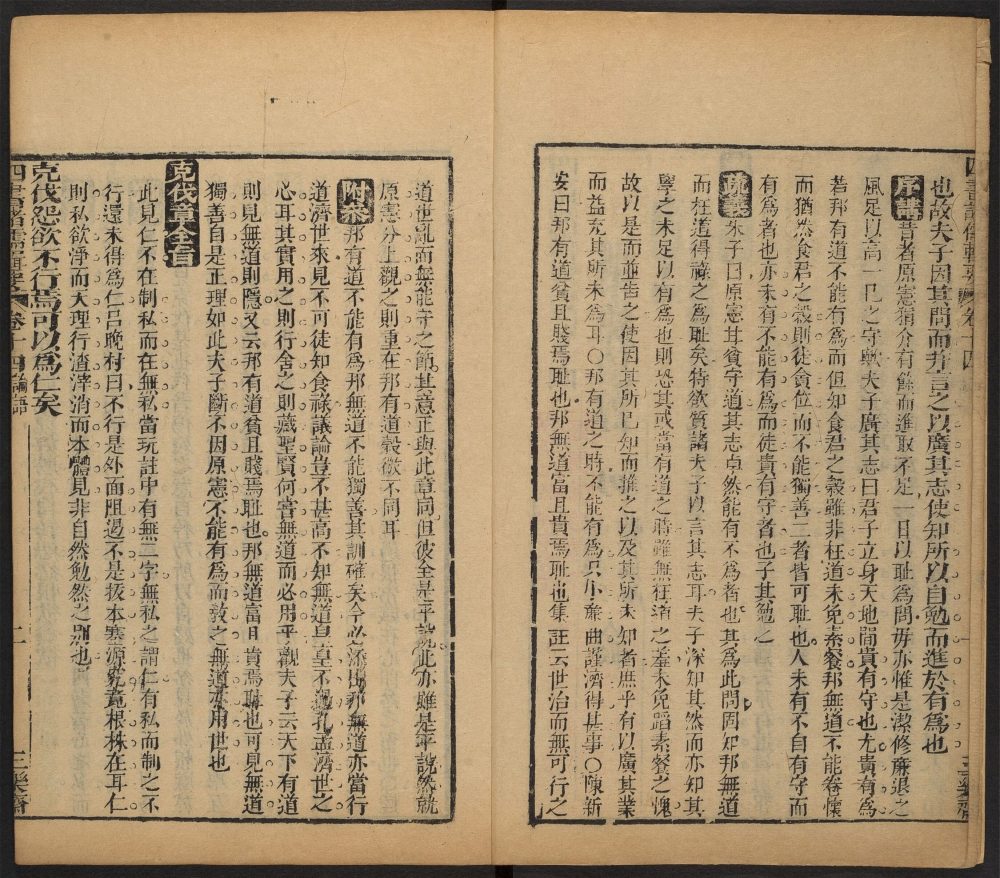 也故夫子因其問而幷言之以廣其志使知所以自勉而進於有爲也
序講 昔者原憲狷介有餘而進取不足一日以耻爲問毋亦惟是潔修廉退之
風足以高一己之守歟夫子廣其志曰君子立身天地間貴有守也尤貴有爲
若邦有道不能有爲而但知食君之穀雖非枉道未免素餐邦無道不能卷懷
而猶然食君之穀則徒貪位而不能獨善二者皆可耻也人未有不自有守而
有爲者也亦未有不能有爲而徒貴有守者也子其勉之
疏義 朱子曰原憲甘貧守道其志卓然能有不爲者也其爲此問固知邦無道
而枉道得祿之爲耻矣特欲質諸夫子以言其志耳夫子深知其然而亦知其
學之未足以有爲也則恐其或當有道之時雖無枉道之羞未免蹈素餐之愧
故以是而並告之使因其所已知而推之以及其所未知者庶乎有以廣其業
而益充其所未爲耳○邦有道之時不能有爲只小廉曲謹濟得甚事○陳新
安曰邦有道貧且賤焉耻也邦無道富且貴焉耻也集註云世治而無可行之
道世亂而無能守之節其意正與此章同但彼全是平說此亦雖是平說然就
原憲分上觀之則重在邦有道穀微不同耳
附叅 邦有道不能有爲邦無道不能獨善其訓確矣今必添出邦無道亦當行
道濟世來見不可徒知食祿議論豈不甚高不知無道皇皇不過孔孟濟世之
心耳其實用之則行舍之則藏聖賢何嘗無道而必用乎觀夫子云天下有道
則見無道則隱又云邦有道貧且賤焉耻也邦無道富且貴焉耻也可見無道
獨善自是正理如此夫子斷不因原憲不能有爲而敎之無道亦用世也
克伐章全旨
此見仁不在制私而在無私當玩註中有無二字無私之謂仁有私而制之不
行還未得爲仁呂晚村曰不行是外面阻遏不是拔本塞源究竟根株在耳仁
則私欲淨而天理行渣滓消而本體見非自然勉然之别也
克伐怨欲不行焉可以爲仁矣
四書諸儒輯要 卷十四 論語 二 三樂齋